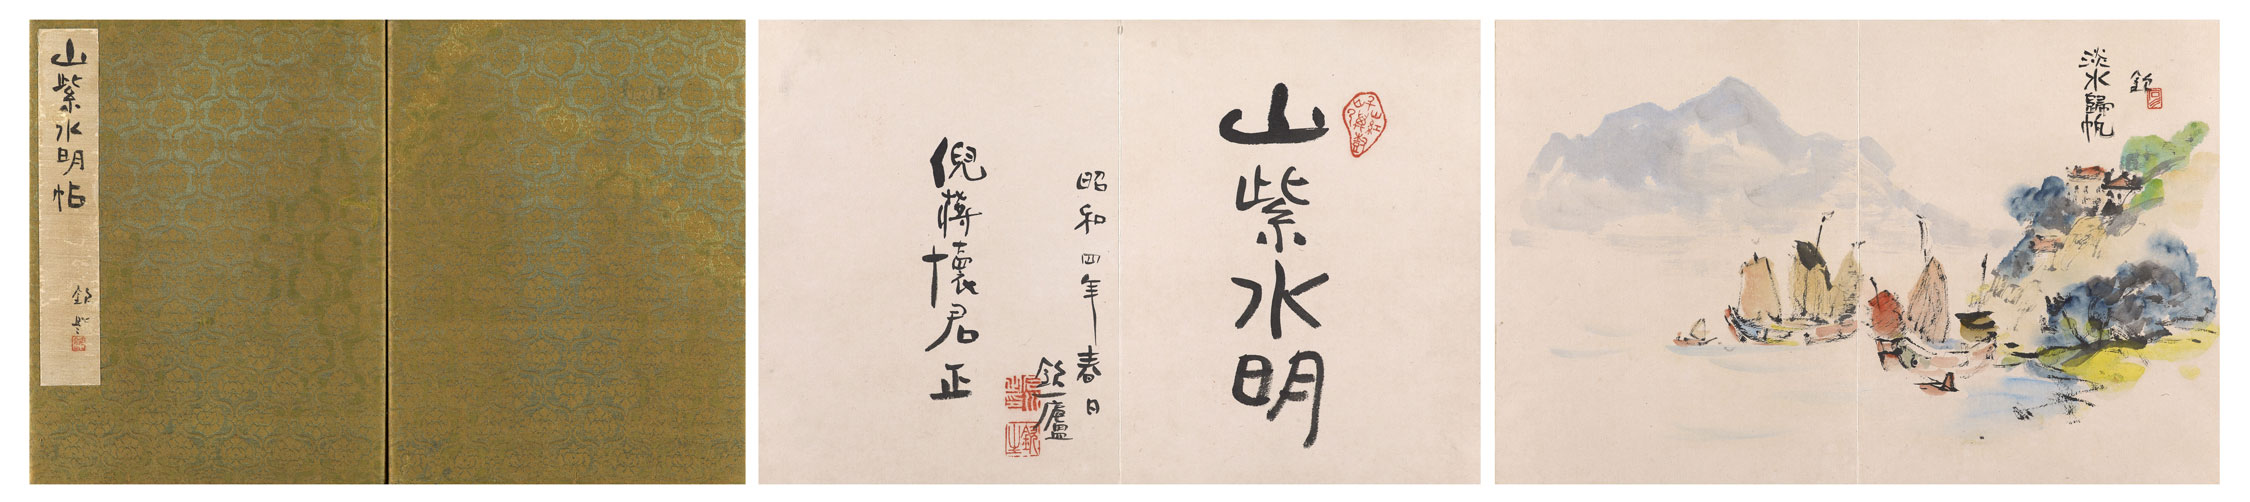 山紫水明帖
山紫水明
昭和四年春日
倪蒋懷君正
淡水歸帆